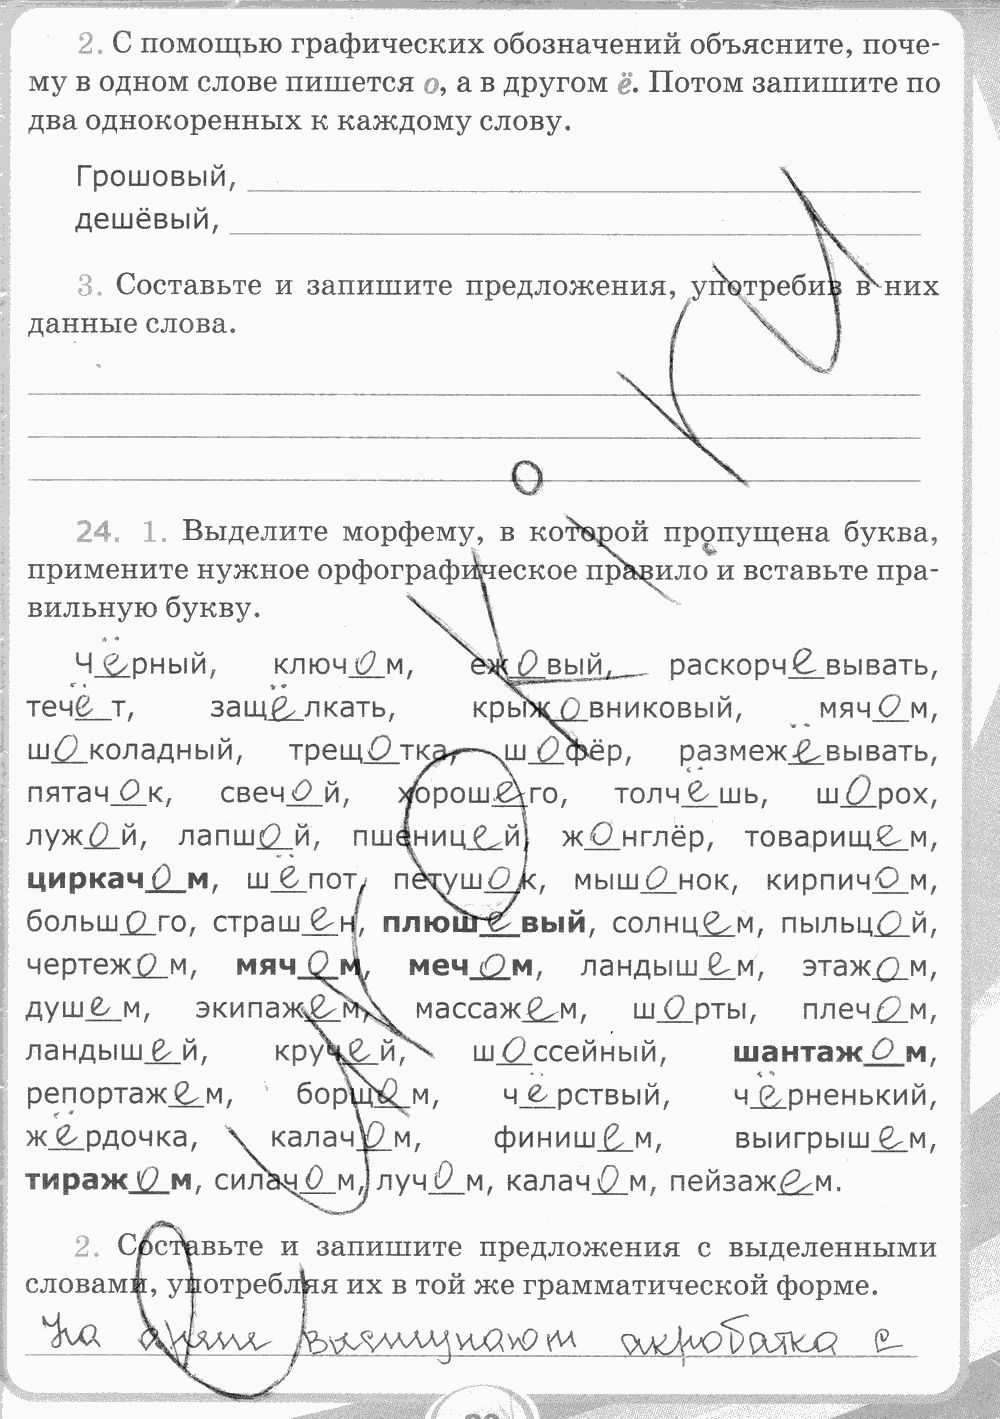 2. С помощью графических обозначений объясните, поче-
му в одном слове пишется о, а в другом ё. Потом запишите по
два однокоренных к каждому слову.
Грошовый,
дешёвый,
3. Составьте и запишите предложения, употребив в них
данные слова.
24. 1. Выделите морфему, в которой пропущена буква,
примените нужное орфографическое правило и вставьте пра-
вильную букву.
Чёрный, ключом, ежовый, раскорчёвывать,
течёт, защёлкать, крыжовниковый, мячом,
шоколадный, трещотка, шофёр, размежёвывать,
пятачок, свечой, хорошего, толчёшь, шорох,
лужой, лапшой, пшеницей, жонглёр, товарищем,
циркачом, шёпот, петушок, мышонок, кирпичом,
большого, страшен, плюшевый, солнцем, пыльцой,
чертежом, мячом, мечом, ландышем, этажом,
душем, экипажем, массажем, шорты, плечом,
ландышей, кручей, шоссейный, шантажом,
репортажем, борщом, чёрствый, чёрненький,
жёрдочка, калачом, финишем, выигрышем,
тиражом, силачом, лучом, калачом, пейзажем.
2. Составьте и запишите предложения с выделенными
словами, употребляя их в той же грамматической форме.
На арене выступают акробатка с